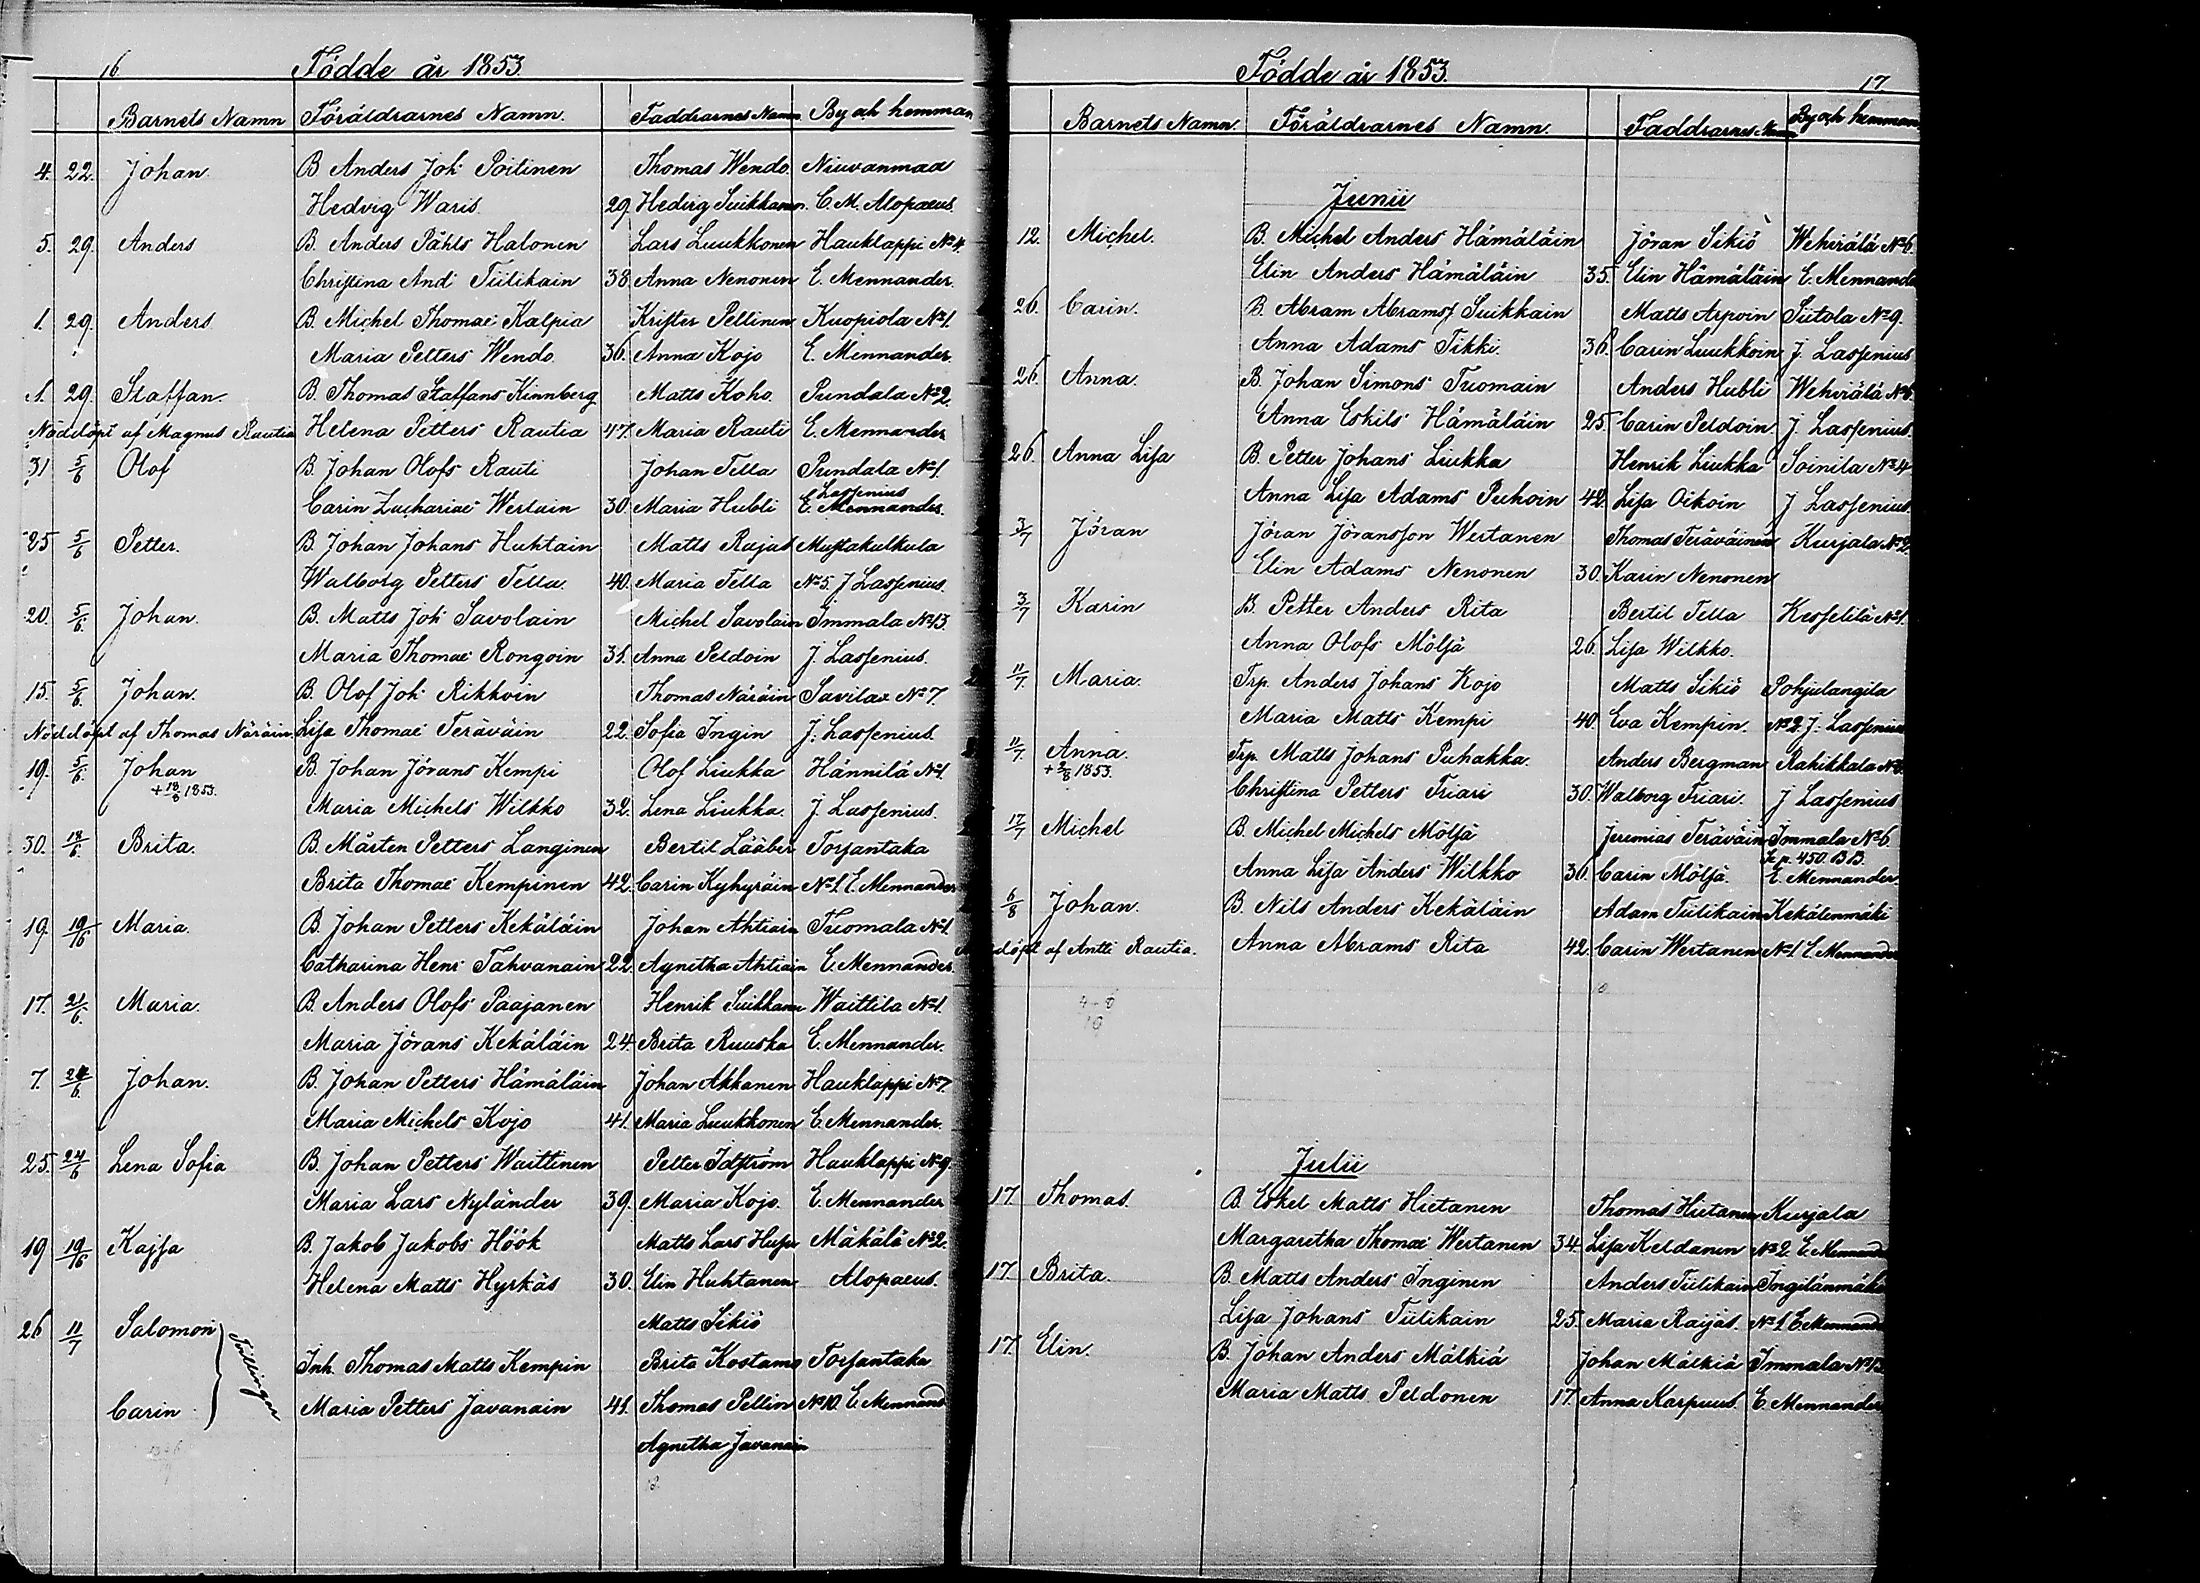 16 Födde år 1853.
Barnets Namn Föräldrarnes Namn. Faddrarnes Namn By och hemman
4. 22. Johan. B Anders Joh: Poitinen Thomas Wendo. Niuvanmaa
Hedvig Waris. 29. Hedvig Suikkanen. C. M. Alopaeus.
5. 29. Anders B. Anders Påhls Halonen Lars Luukkonen Hauklappi No 4.
Christina And: Tiilikain 38. Anna Nenonen E. Mennander.
1. 29. Anders B. Michel Thomae Kalpia Krister Pellinen Kuopiola No 1.
Maria Petters Wendo. 36. Anna Kojo E. Mennander.
1. 29. Staffan. B. Thomas Staffans Kinnberg Matts Koho. Pundala No 2.
Nöddöpt af Magnus Rautia Helena Petters Rautia 47. Maria Rauti E. Mennander
31 5/6 Olof B. Johan Olofs Rauti Johan Tella Pundala No 1.
Lassenius
Carin Zachariae Wertain 30. Maria Hubli E. Mennander.
25 5/6 Petter. B. Johan Johans Huhtain Matts Rajas Mustakulkula
Walborg Petters Tella. 40. Maria Tella No 5. J Lassenius.
20. 5/6. Johan. B. Matts Joh: Savolain Michel Savolain Immala No 13.
Maria Thomae Rongoin 31. Anna Peldoin J. Lassenius.
15. 5/6. Johan. B. Olof Joh: Rikkoin Thomas Näräin Savilax No 7.
Nöddöpt af Thomas Näräin. Lisa Thomae Teräväin 22. Sofia Ingin J. Lassenius.
19. 5/6. Johan B. Johan Jörans Kempi Olof Liukka Hännilä No 1.
+ 18/8 1853.
Maria Michels Wilkko 32. Lena Liukka. J. Lassenius.
30. 12/6. Brita. B. Mårten Petters Langinen Bertil Lääber Torsantaka
Brita Thomae Kempinen 42. Carin Kyhyräin No 1. E Mennander
19. 19/6 Maria. B. Johan Petters Kekäläin Johan Ahtiain Tuomala No 1.
Catharina Henr: Tahvanain 22. Agnitha Ahtiain E. Mennander.
17. 21/6. Maria. B. Anders Olofs Paajanen Henrik Suikkanen Waittila No 1.
Maria Jörans Kekäläin 24. Brita Ruuska E. Mennander.
7. 24/6. Johan. B. Johan Petters Hämäläin Johan Akkanen Hauklappi No 7.
Maria Michels Kojo 41. Maria Luukkonen E. Mennander.
25. 24/6 Lena Sofia B. Johan Petters Waittinen Petter Idström Hauklappi No 9.
Maria Lars Nyländer 39. Maria Kojo. E. Mennander
19 19/6 Kajsa B. Jakob Jakobs Höök Matts Lars Hupu Mäkälä No 2.
Helena Matts Hyrkäs 30. Elin Huhtanen Alopaeus.
Matts Sikiö
26 11/7 Salomon Tvillingar
Inh. Thomas Matts Kempin Brita Kostamo Torsantaka
Carin Maria Petters Javanain 41. Thomas Pellin No 10. E Mennand
Agnetha Javanain
Födde år 1853. 17
Barnets Namn. Föräldrarnes Namn. Faddrarnes Namn By och hemman
Junii
12. Michel. B. Michel Anders Hämäläin Jöran Sikiö Wehvirälä No 6.
Elin Anders Hämäläin 35. Elin Hämäläin E. Mennander
26. Carin. B. Abram Abramsf Suikkain Matts Arpoin Siitola No 9.
Anna Adams Tikki. 36. Carin Luukkoin J. Lassenius
26. Anna. B. Johan Simons Tuomain Anders Hubli Wehvirälä No 6.
Anna Eskils Hämäläin 25. Carin Peldoin J. Lassenius.
26. Anna Lisa B. Petter Johans Liukka Henrik Liukka Soinila No 4
Anna Lisa Adams Puhoin 42. Lisa Oikoin J Lassenius.
3/7 Jöran Jöran Jöransson Wertanen Thomas Teräväinen Kurjala No 2
Elin Adams Nenonen 30. Karin Nenonen
3/7 Karin B. Petter Anders Rita Bertil Tella Kesselilä No 1.
Anna Olofs Mölsä 26. Lisa Wilkko.
11/7. Maria. Trp. Anders Johans Kojo Matts Sikiö Pohjalangila
Maria Matts Kempi 40. Eva Kempin. No 2. J. Lassenius
11/7. Anna. Trp. Matts Johans Puhakka. Anders Bergman Rahikkala No 3.
+ 2/8 1853.
Christina Petters Friari 30. Walborg Friari. J Lassenius
17/7 Michel B. Michel Michels Mölsä Jeremias Teräväin Immala No 6.
Se p. 450. B B.
Anna Lisa Anders Wilkko 30. Carin Mölsä. E. Mennander.
6/8 Johan. B. Nils Anders Kekäläin Adam Tiilikain Kekälenmäki
döpt af Antti Rautia. Anna Abrams Rita 42. Carin Wertanen No 1. E. Mennander
Julii
17. Thomas. B. Eskel Matts Hietanen Thomas Hietanen Kurjala
Margaretha Thomae Wertanen 34. Lisa Keldanen No 2. E. Mennand
17. Brita. B. Matts Anders Inginen Anders Tiilikain Ingilänmäki
Lisa Johans Tiilikain 25. Maria Raijas. No 1. E Mennander
17. Elin. B. Johan Anders Mälkiä Johan Mälkiä Immala No 13
Maria Matts Peldonen 17. Anna Karpuus. E. Mennander